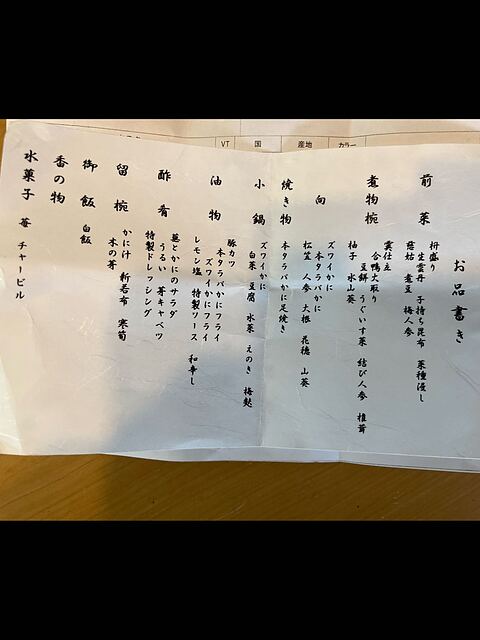 VT 国 産地 カラー
お品書き
前菜
枡盛り
生雲丹 子持ち昆布 菜種浸し
慈姑 煮豆 梅人参
煮物椀
雲仕立
合鴨丸取り
豆餅 うぐいす菜 結び人参 椎茸
柚子 水山葵
向
ズワイかに
本タラバかに
松笠 人参 大根 花穂 山葵
焼き物
本タラバかに足焼き
小鍋
ズワイかに
白菜 豆腐 水菜 えのき 梅麩
油物
豚カツ
本タラバかにフライ
ズワイかにフライ
レモン塩 特製ソース 和辛し
酢肴
葱とかにのサラダ
うるい 芽キャベツ
特製ドレッシング
留椀
かに汁 新若布 寒筍
木の芽
御飯
白飯
香の物
水菓子
苺 チャービル